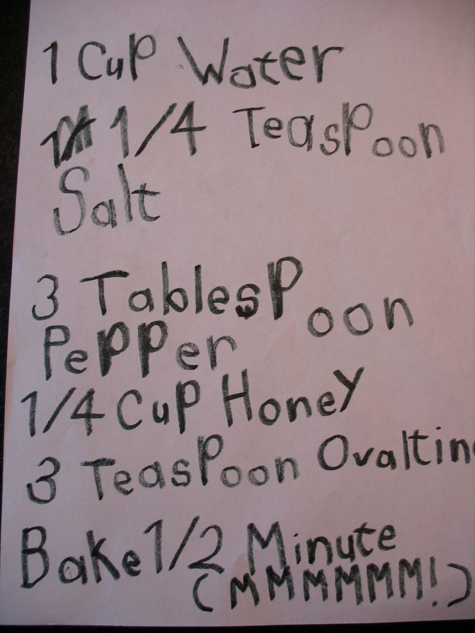 1 Cup Water
1/4 Teaspoon
Salt
3 Tablespoon
Pepper
1/4 Cup Honey
3 Teaspoon Ovaltin
Bake 1/2 Minute
(MMMMMM!)